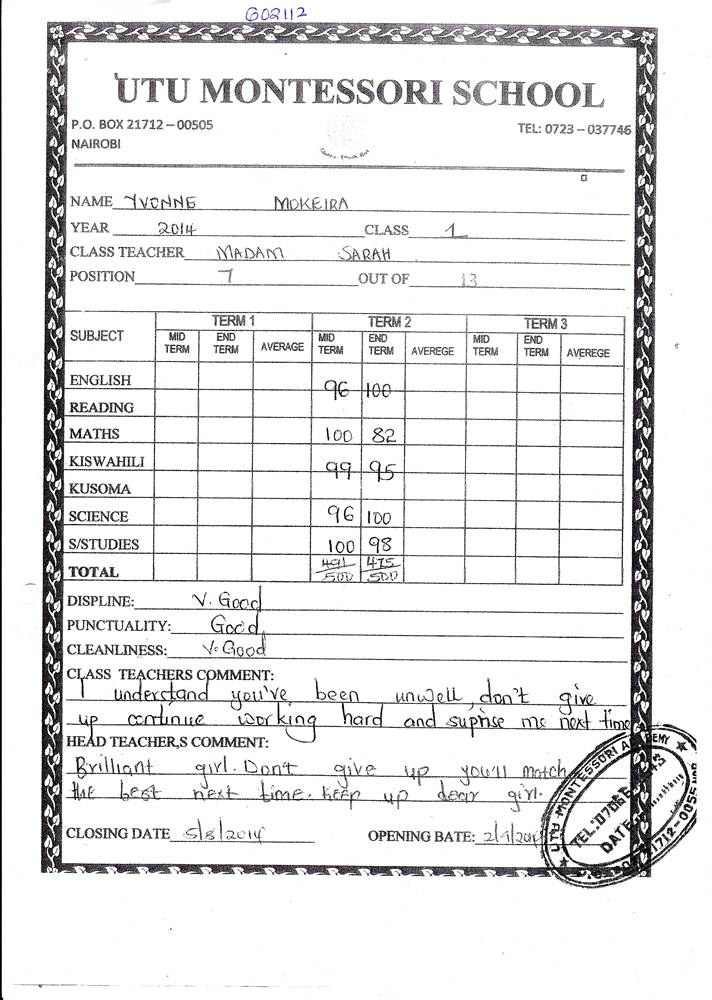 G02112
UTU MONTESSORI SCHOOL
P.O. BOX 21712 – 00505
TEL: 0723 – 037746
NAIROBI
NAME YVONNE MOKEIRA
YEAR 2014 CLASS 1
CLASS TEACHER MADAM SARAH
POSITION 7 OUT OF 13
SUBJECT TERM 1 TERM 2 TERM 3
MID TERM END TERM AVERAGE MID TERM END TERM AVEREGE MID TERM END TERM AVEREGE
ENGLISH 96 100
READING
MATHS 100 82
KISWAHILI 99 95
KUSOMA
SCIENCE 96 100
S/STUDIES 100 98
TOTAL 491/500 475/500
DISPLINE: V. Good
PUNCTUALITY: Good
CLEANLINESS: V. Good
CLASS TEACHERS COMMENT:
I understand you've been unwell, don't give
up continue working hard and suprise me next time
HEAD TEACHER,S COMMENT:
Brilliant girl. Don't give up you'll match
the best next time. Keep up dear girl.
CLOSING DATE 5/8/2014 OPENING BATE: 2/9/2014
UTU MONTESSORI
TEL:
DATE